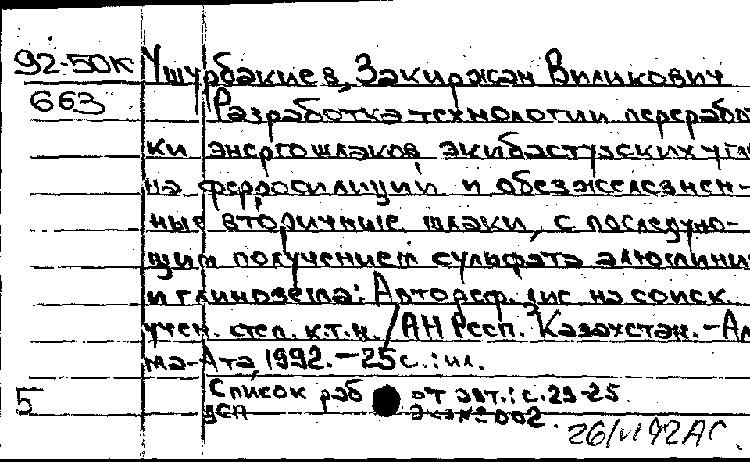 92-50К Ушурбакиев, Закиржан Виликович
663 Разработка технологии переработ
ки энергошлаков экибастузских угл
на ферросилиций и обезжелезнен-
ные вторичные шлаки, с последую-
щим получением сульфата алюмини
и глинозема: Автореф. дис на соиск.
учен. степ. к.т.н. / АН Респ. Казахстан. - Ал
ма-Ата, 1992. - 25 с.: ил.
5 Список раб от авт.: с. 23-25
ДСП экз №2 002.
26/VI 92 АС